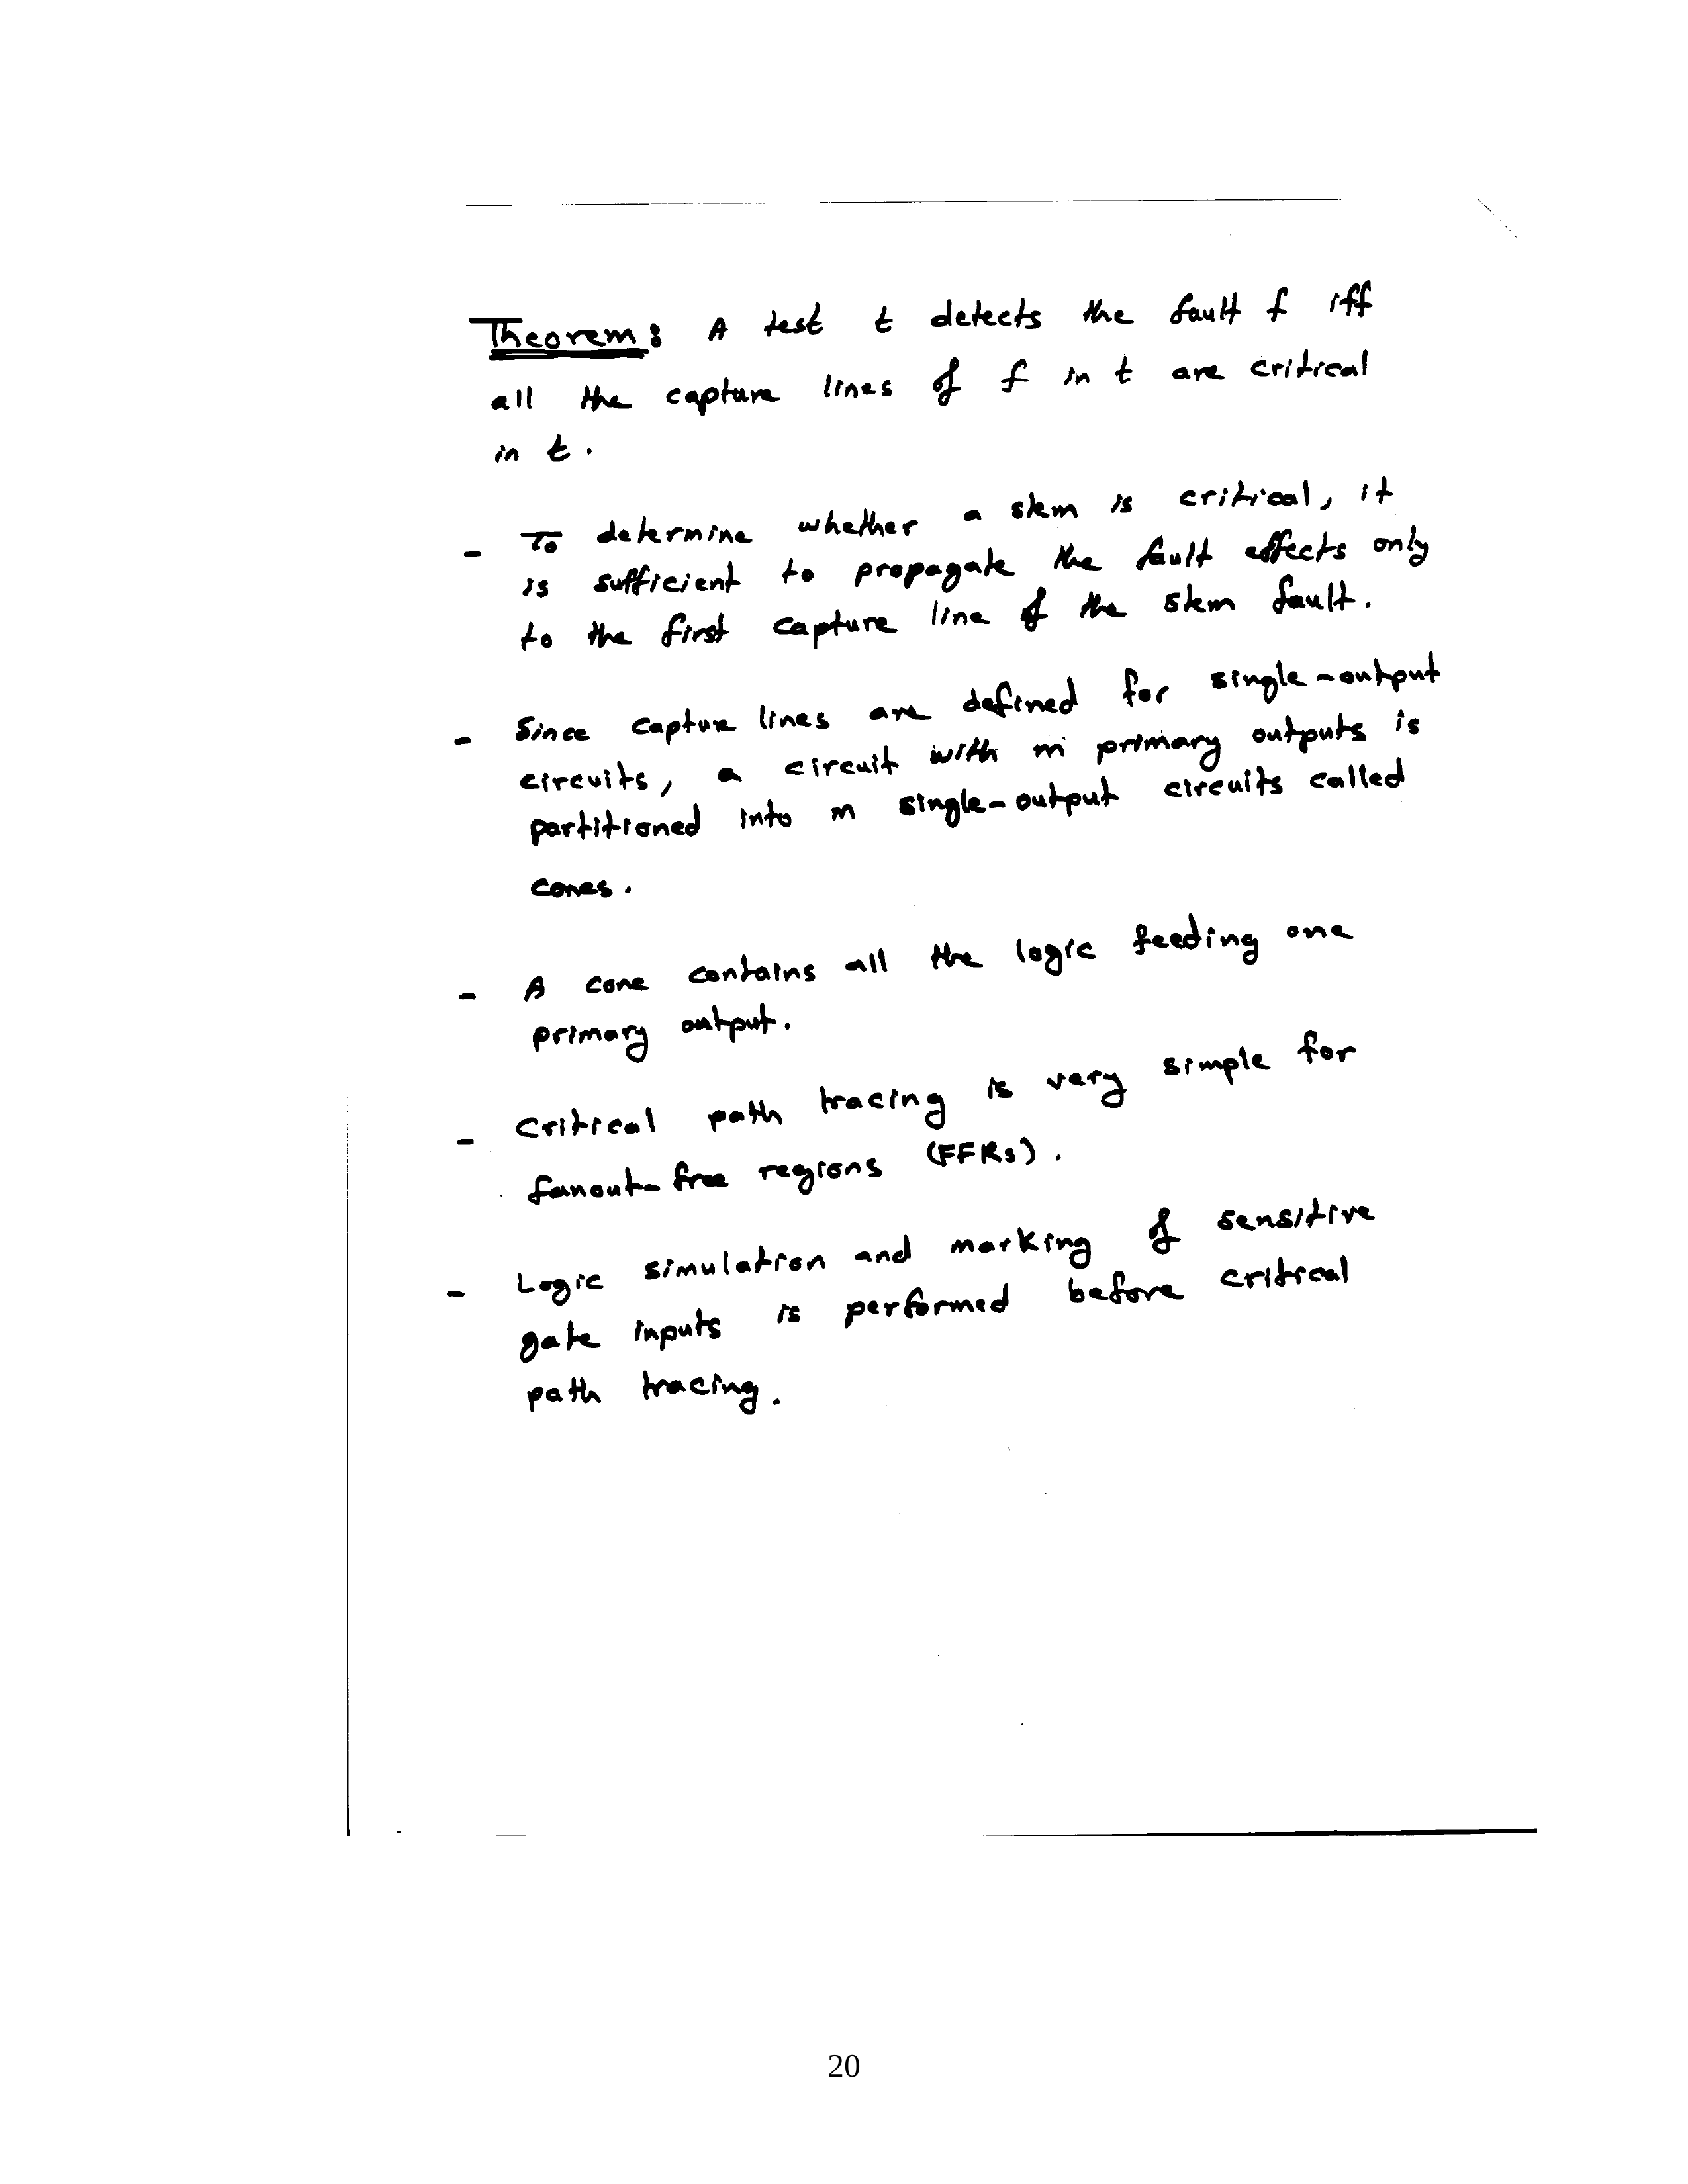 Theorem: A test t detects the fault f iff
all the capture lines of f in t are critical
in t.
- To determine whether a stem is critical, it
is sufficient to propagate the fault effects only
to the first capture line of the stem fault.
- Since capture lines are defined for single-output
circuits, a circuit with m primary outputs is
partitioned into m single-output circuits called
cones.
- A cone contains all the logic feeding one
primary output.
- Critical path tracing is very simple for
fanout-free regions (FFRs).
- Logic simulation and marking of sensitive
gate inputs is performed before critical
path tracing.
20